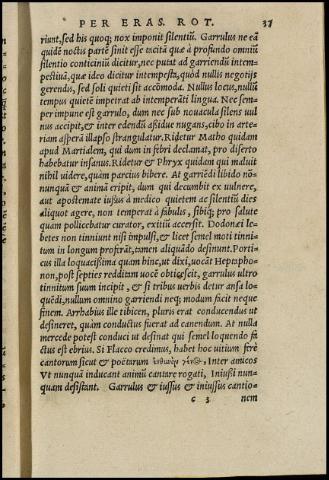 PER ERAS. ROT. 37
riunt, sed his quoq; nox imponit silentiũ. Garrulus ne eã
quidẽ noctis partẽ sinit esse tacitã quæ à profundo omniũ
silentio conticiniũ dicitur, nec putat ad garriendũ intem-
pestiuã, quæ ideo dicitur intempesta, quòd nullis negotijs
gerendis, sed soli quieti sit accõmoda. Nullus locus, nullũ
tempus quietẽ impetrat ab intemperãti lingua. Nec sem-
per impune est garrulo, dum nec sub nouacula silens vul
nus accipit, & inter edendũ assidue nugans, cibo in arte-
riam asperã illapso strangulatur. Ridetur Matho quidam
apud Martialem, qui dum in febri declamat, pro diserto
habebatur insanus. Ridetur & Phryx quidam qui maluit
nihil videre, quàm parcius bibere. At garriẽdi libido nõ-
nunquã & animã eripit, dum qui decumbit ex vulnere,
aut apostemate iussus à medico quietem ac silentiũ dies
aliquot agere, non temperat à fabulis, sibiq; pro salute
quam pollicebatur curator, exitiũ accersit. Dodonæi le-
betes non tinniunt nisi impulsi, & licet semel moti tinni-
tum in longum profrãt, tamen aliquãdo desinunt. Porti-
cus illa loquacissima quam hinc, ut dixi, uocãt Heptapho-
non, post septies redditam uocẽ obticescit, garrulus ultro
tinnitum suum incipit, & si tribus uerbis detur ansa lo-
quẽdi, nullum omnino garriendi neq; modum facit neque
finem. Arrhabius ille tibicen, pluris erat conducendus ut
desineret, quàm conductus fuerat ad canendum. At nulla
mercede potest conduci ut desinat qui semel loquendo fa
ctus est ebrius. Si Flacco credimus, habet hoc uitium ferè
cantorum sicut & poëtarum γένος, Inter amicos
Vt nunquã inducant animũ cantare rogati, Iniussi nun-
quam desistant. Garrulus & iussus & iniussus cantio-
c 3 nem